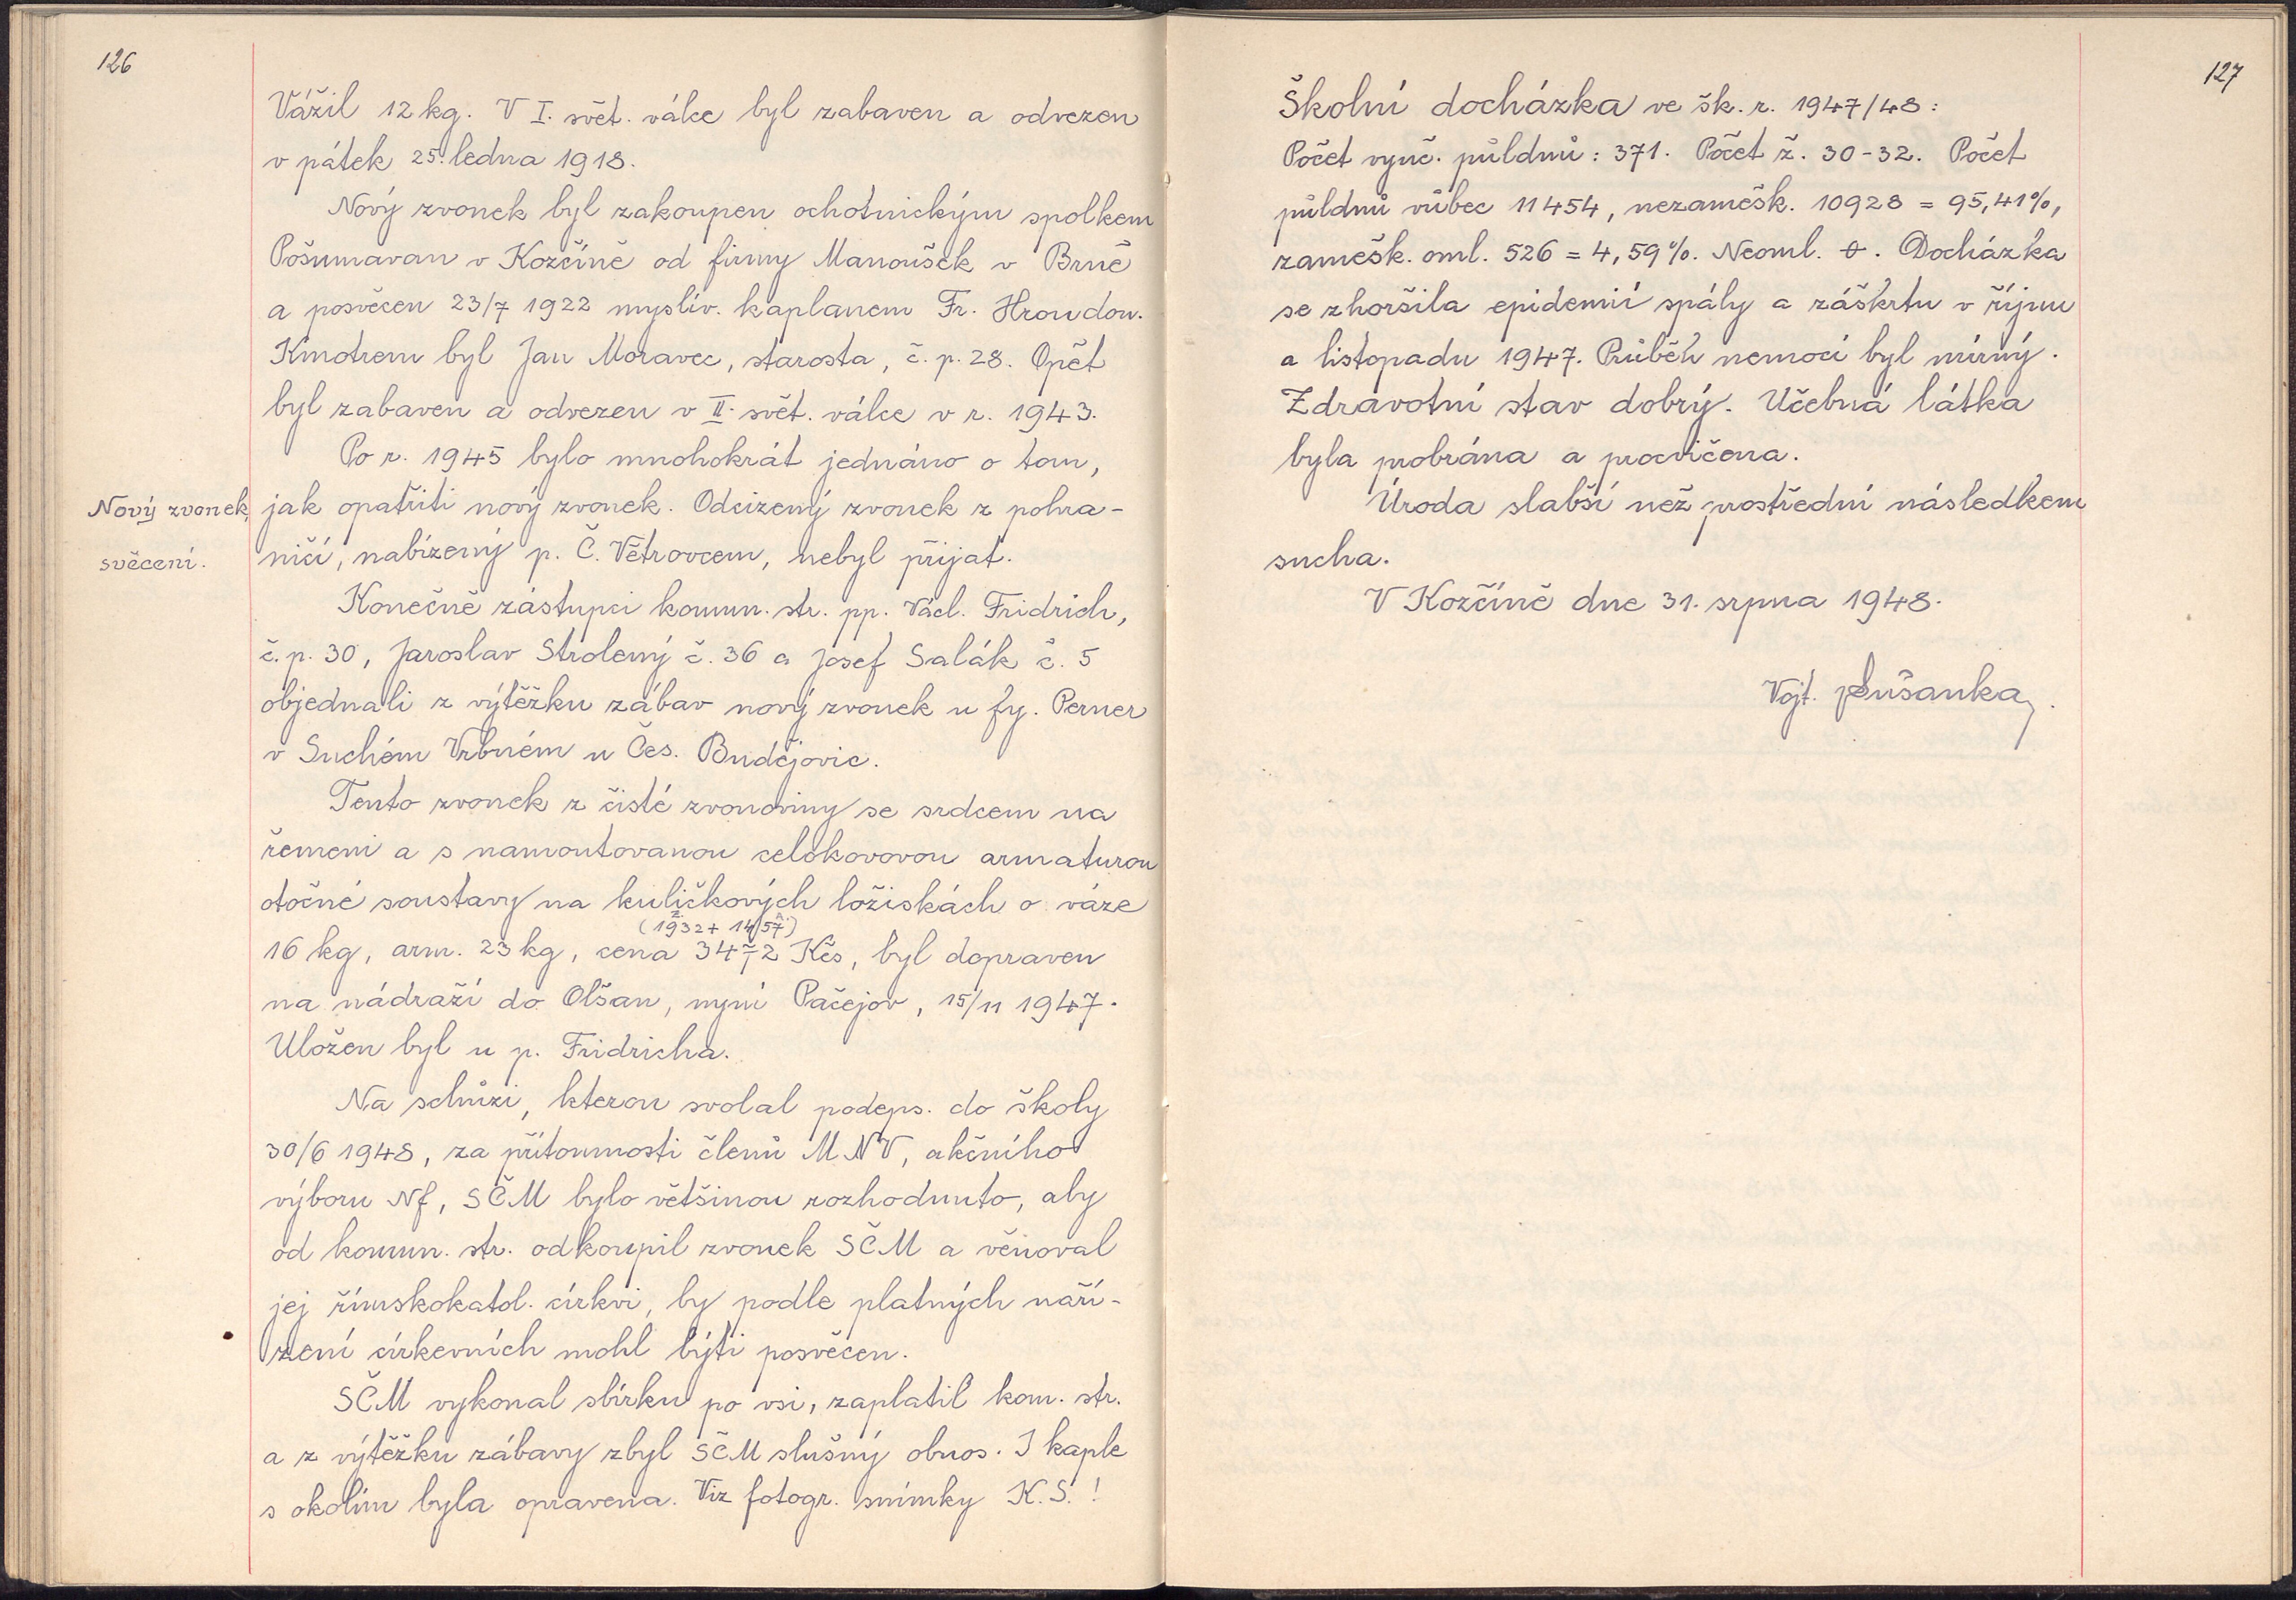 126
Vážil 12 kg. V I. svět. válce byl zabaven a odvezen
v pátek 25. ledna 1918.
Nový zvonek byl zakoupen ochotnickým spolkem
Pošumavan v Kozčíně od firmy Manoušek v Brně
a posvěcen 23/7 1922 myslív. kaplanem Fr. Hroudou.
Kmotrem byl Jan Moravec, starosta, č. p. 28. Opět
byl zabaven a odvezen v II. svět. válce v r. 1943.
Po r. 1945 bylo mnohokrát jednáno o tom,
Nový zvonek, jak opatřiti nový zvonek. Odcizený zvonek z pohra-
svěcení. ničí, nabízený p. Č. Větrovcem, nebyl přijat.
Konečně zástupci komun. str. pp. Václ. Fridrich,
č. p. 30, Jaroslav Strolený č. 36 a Josef Salák č. 5
objednali z výtěžku zábav nový zvonek u fy. Perner
v Suchém Vrbném u Čes. Budějovic.
Tento zvonek z čisté zvonoviny se srdcem na
řemeni a s namontovanou celokovovou armaturou
otočné soustavy na kuličkových ložiskách o váze
(1932 + 1457)
16 kg, arm. 23 kg, cena Kčs, byl dopraven
na nádraží do Olšan, nyní Pačejov, 15/11 1947.
Uložen byl u p. Fridricha.
Na schůzi, kterou svolal podeps. do školy
30/6 1948, za přítomnosti členů MNV, akčního
výboru Nf, SČM bylo většinou rozhodnuto, aby
od komun. str. odkoupil zvonek SČM a věnoval
jej římskokatol. církvi, by podle platných naří-
zení církevních mohl býti posvěcen.
SČM vykonal sbírku po vsi, zaplatil kom. str.
a z výtěžku zábavy zbyl SČM slušný obnos. I kaple
s okolím byla opravena. Viz fotogr. snímky K. S. !
127
Školní docházka ve šk. r. 1947/48:
Počet vyuč. půldnů: 371. Počet ž. 30-32. Počet
půldnů vůbec 11454, nezamešk. 10928 = 95,41%,
zamešk. oml. 526 = 4,59%. Neoml. 0. Docházka
se zhoršila epidemií spály a záškrtu v říjnu
a listopadu 1947. Průběh nemocí byl mírný.
Zdravotní stav dobrý. Učebná látka
byla probrána a procvičena.
Úroda slabší než prostřední následkem
sucha.
V Kozčíně dne 31. srpna 1948.
Vojt.